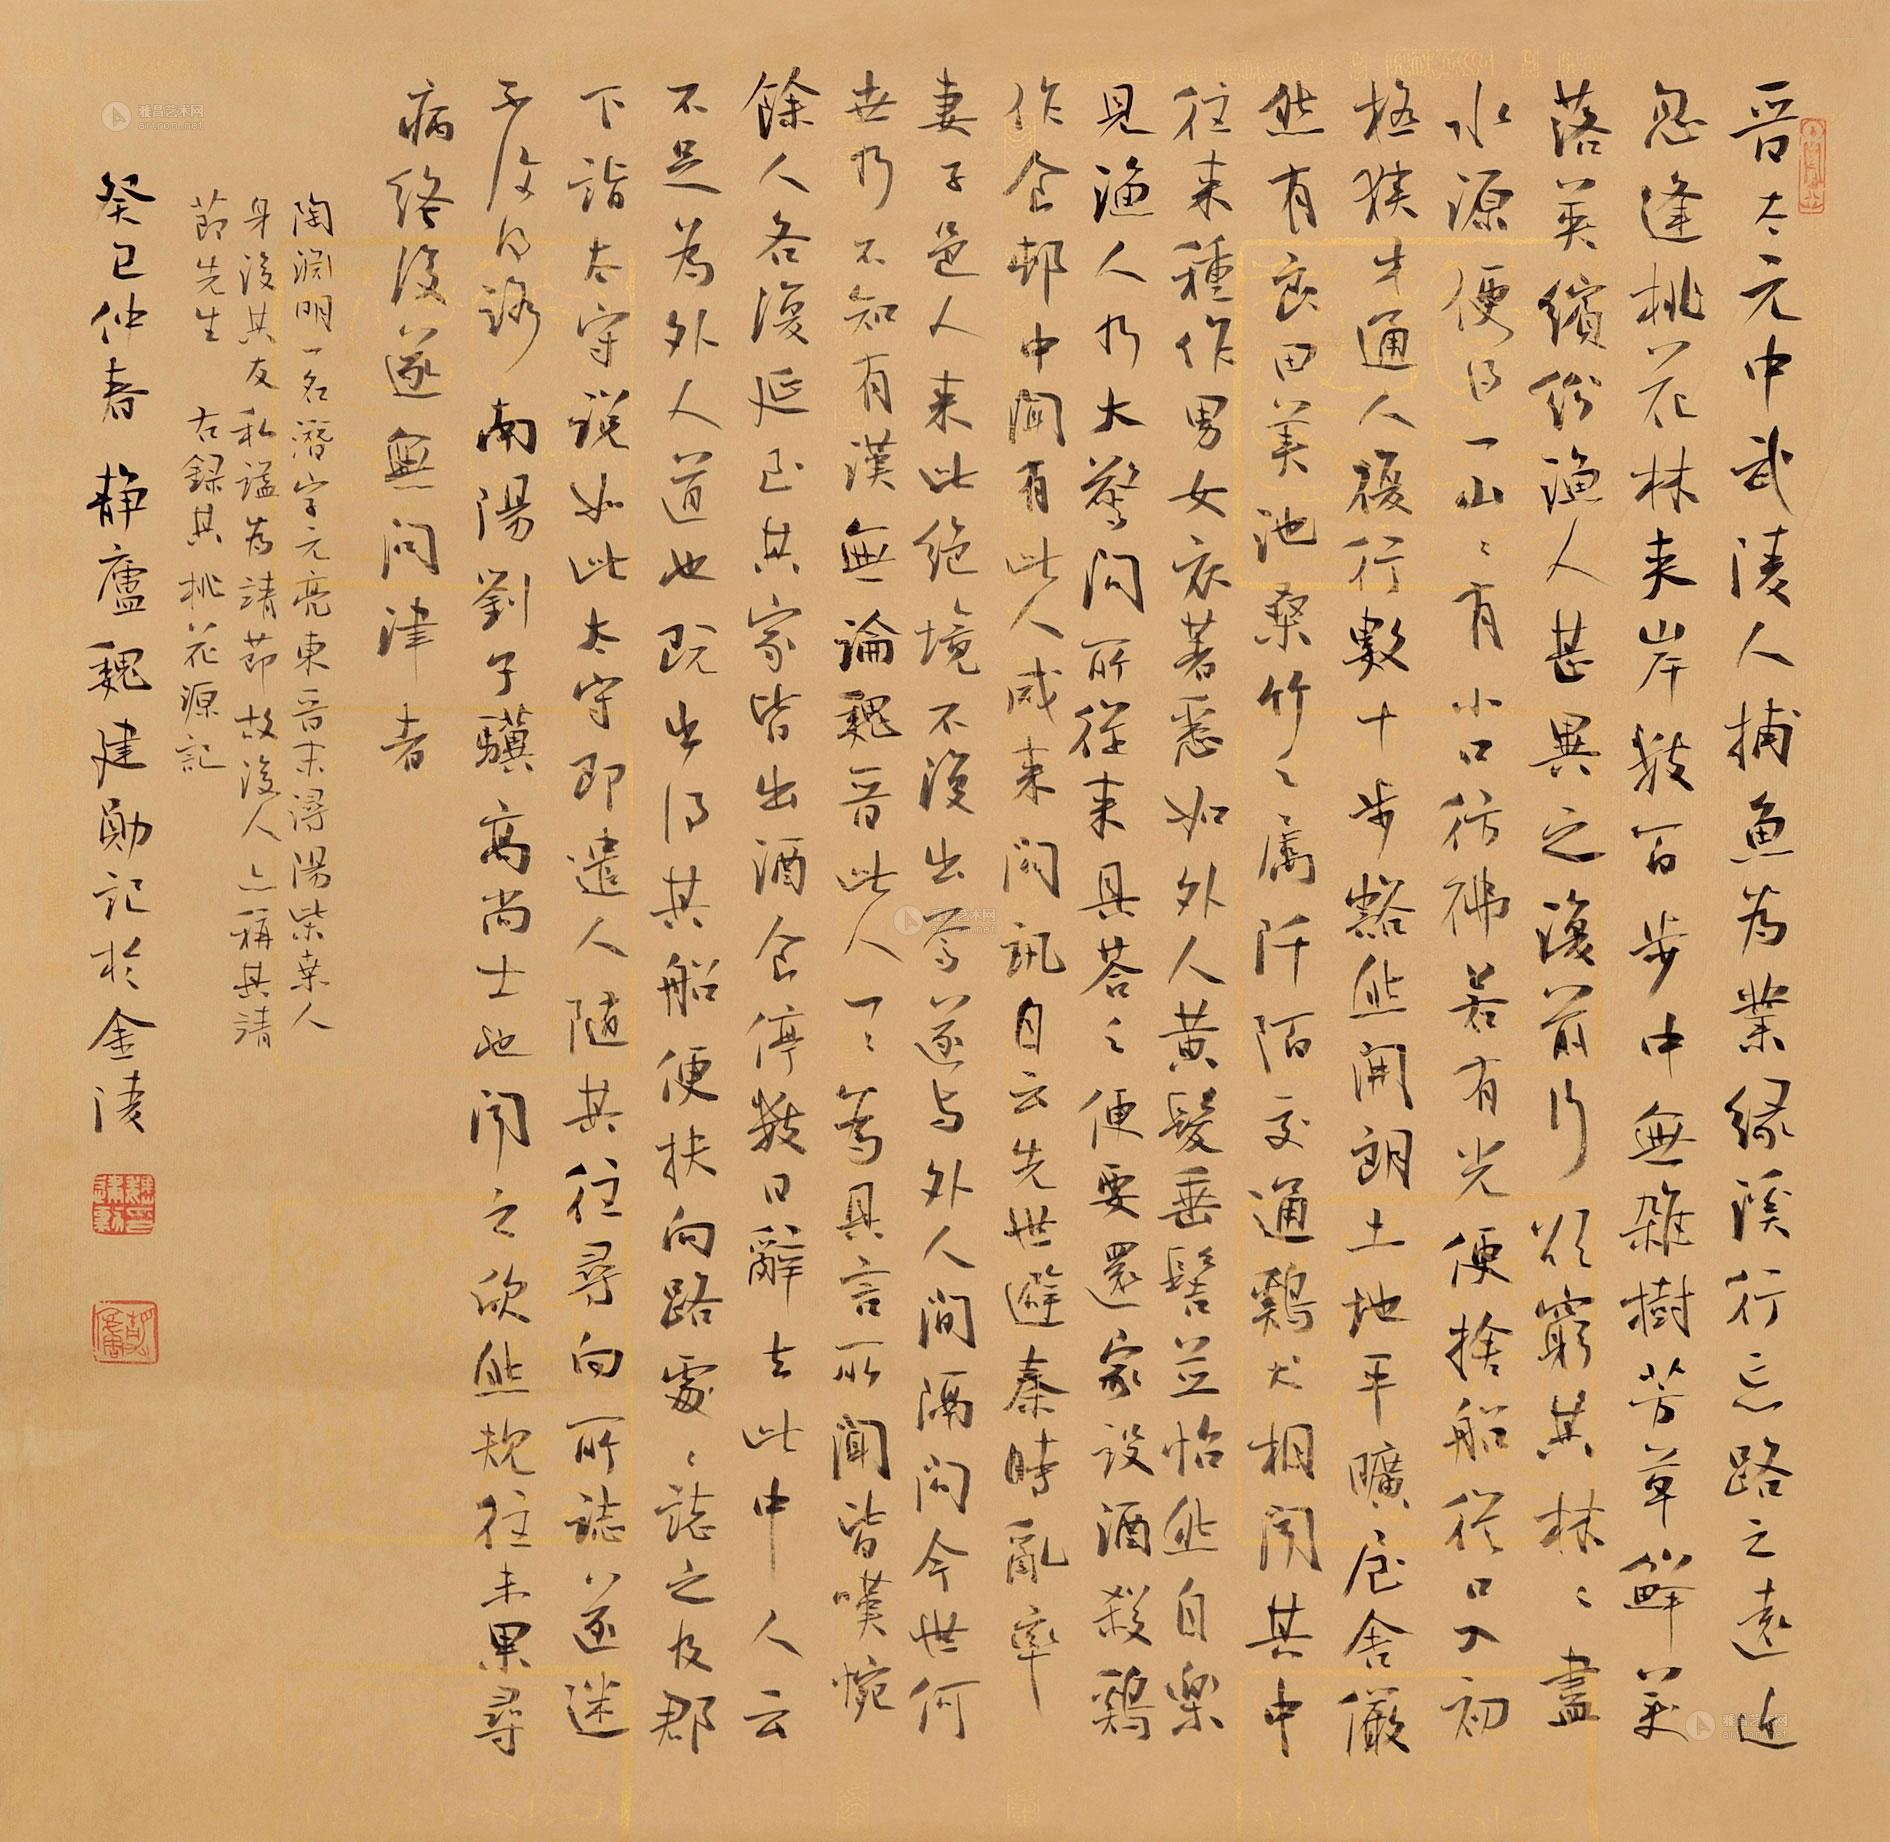 晉太元中武陵人捕魚為業緣溪行忘路之遠近
忽逢桃花林夹岸數百步中無雜樹芳草鮮美
落英繽紛漁人甚異之復前行欲窮其林〻盡
水源便得一山〻有小口仿彿若有光便捨船從口入初
極狹才通人復行數十步豁然開朗土地平曠屋舍儼
然有良田美池桑竹之属阡陌交通鷄犬相聞其中
往来種作男女衣著悉如外人黄髮垂髫並怡然自樂
見漁人乃大驚問所從来具荅之便要還家設酒殺鷄
作食邨中聞有此人咸来問訊自云先世避秦時亂率
妻子邑人来此絶境不復出焉遂与外人間隔問今世何
世乃不知有漢無論魏晉此人一〻為具言所聞皆嘆惋
餘人各復延至其家皆出酒食停數日辭去此中人云
不足為外人道也既出得其船便扶向路處〻誌之及郡
下詣太守説如此太守即遣人隨其往尋向所誌遂迷
不復得路南陽劉子驥高尚士也聞之欣然规往未果尋
病終後遂無問津者
陶淵明一名潛字元亮東晉末潯陽柴桑人
身後其友私謚為靖節故後人亦稱其靖
節先生 右録其桃花源記
癸巳仲春 静廬魏建勋記於金陵
雅昌艺术网
artron.net
雅昌艺术网
artron.net
雅昌艺术网
artron.net